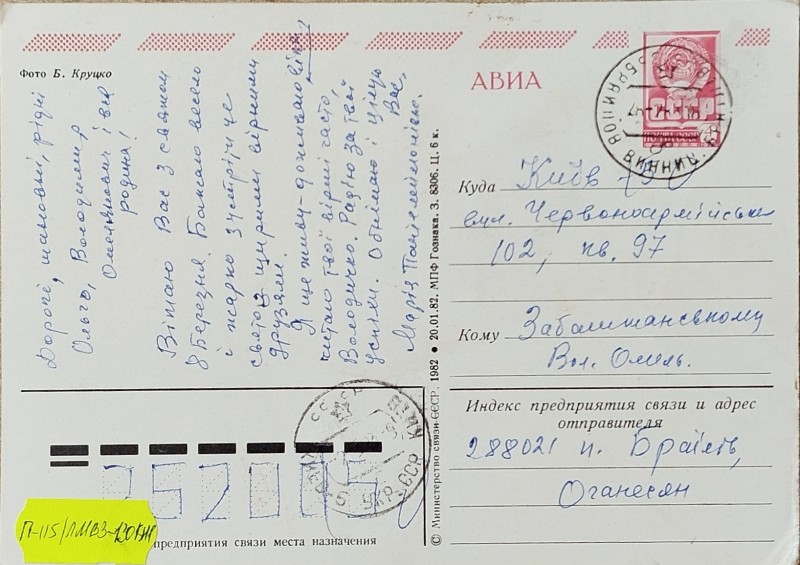 Фото Б. Круцко
АВИА
Дорогі, шановні, рідні
Ольго, Володимир
Омелянович і вся
родина!
Вітаю Вас з святом
8 Березня. Бажаю весело
і жарко зустріти це
свято з щирими вірними
друзями.
Я ще живу-доживаю віку,
читаю твої вірші часто,
Володичко. Радію за твої
успіхи. Обнімаю і цілую
Вас,
Марія Пантелеймонівна.
© Министерство связи СССР. 1982 • 20.01.82. МПФ Гознака. З. 8306. Ц. 6 к.
СССР
ПОЧТА СССР
Куда Київ
вул. Червоноармійська
102, кв. 97
Кому Забаштанському
Вол. Омель.
Индекс предприятия связи и адрес
отправителя
288021 п. Браїлів,
Оганесян
252005
П-115/ЛМВЗ-
предприятия связи места назначения